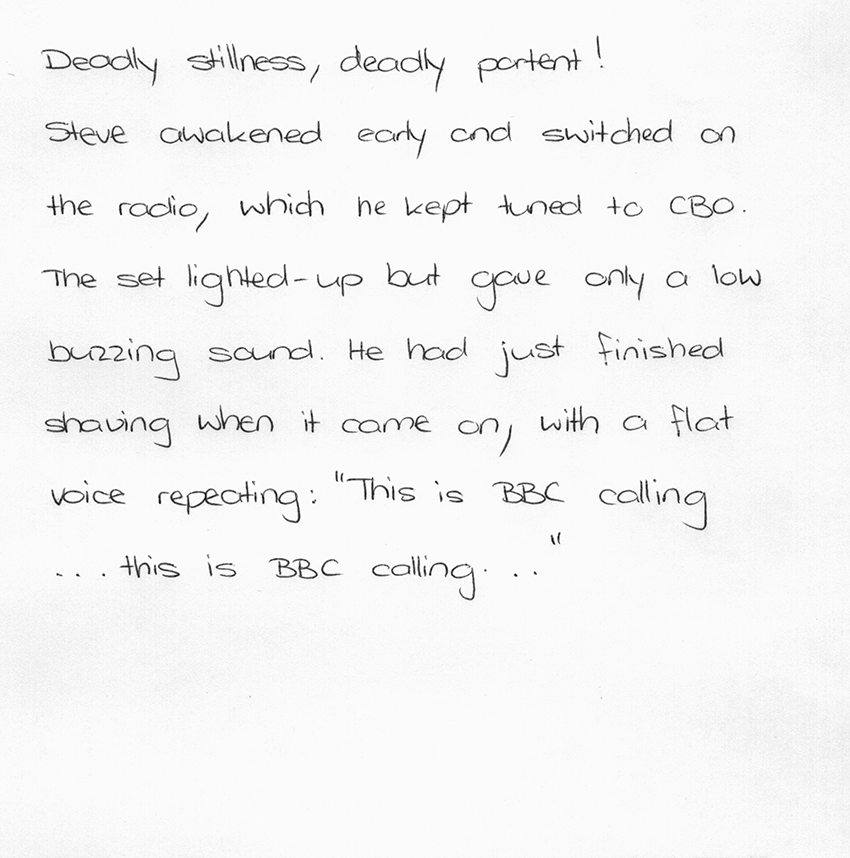 Deadly stillness, deadly portent!
Steve awakened early and switched on
the radio, which he kept tuned to CBO.
The set lighted-up but gave only a low
buzzing sound. He had just finished
shaving when it came on, with a flat
voice repeating: "This is BBC calling
... this is BBC calling..."